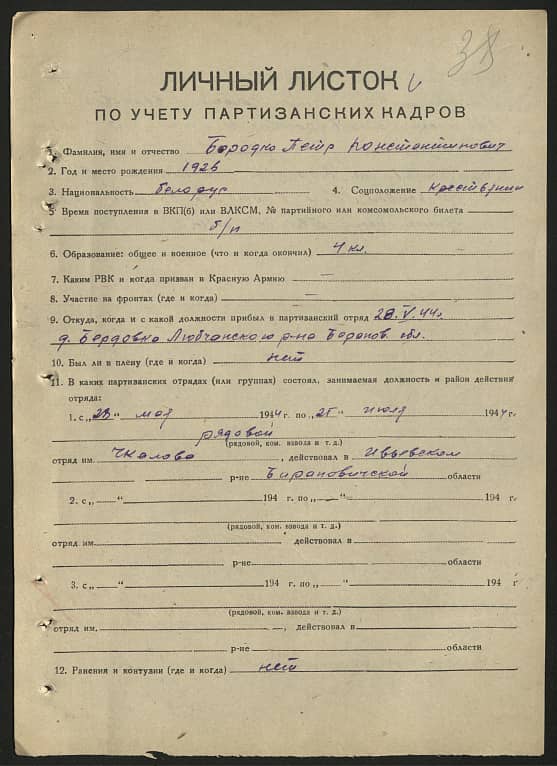 38
ЛИЧНЫЙ ЛИСТОК
ПО УЧЕТУ ПАРТИЗАНСКИХ КАДРОВ
1. Фамилия, имя и отчество Бородко Петр Константинович
2. Год и место рождения 1926
3. Национальность белорус 4. Соцположение крестьянин
5 Время поступления в ВКП(б) или ВЛКСМ, № партийного или комсомольского билета
б/п
6. Образование: общее и военное (что и когда окончил) 4 кл.
7. Каким РВК и когда призван в Красную Армию —
8. Участие на фронтах (где и когда) —
9. Откуда, когда и с какой должности прибыл в партизанский отряд 28.V.44г.
д. Бердовка Любчанского р-на Баранов. обл.
10. Был ли в плену (где и когда) нет
11. В каких партизанских отрядах (или группах) состоял, занимаемая должность и район действия
отряда:
1. с „28“ мая 1944 г. по „25“ июля 1944 г.
рядовой
(рядовой, ком. взвода и т. д.)
отряд им. Чкалова, действовал в Ивьевском
р-не Барановичской области
2. с „ — “ 194 г. по „ — “ 194 г.
(рядовой, ком. взвода и т. д.)
отряд им. действовал в
р-не области
3. с „ — “ 194 г. по „ — “ 194 г
(рядовой, ком. взвода и т. д.)
отряд им. —, действовал в
р-не области
12. Ранения и контузии (где и когда) нет